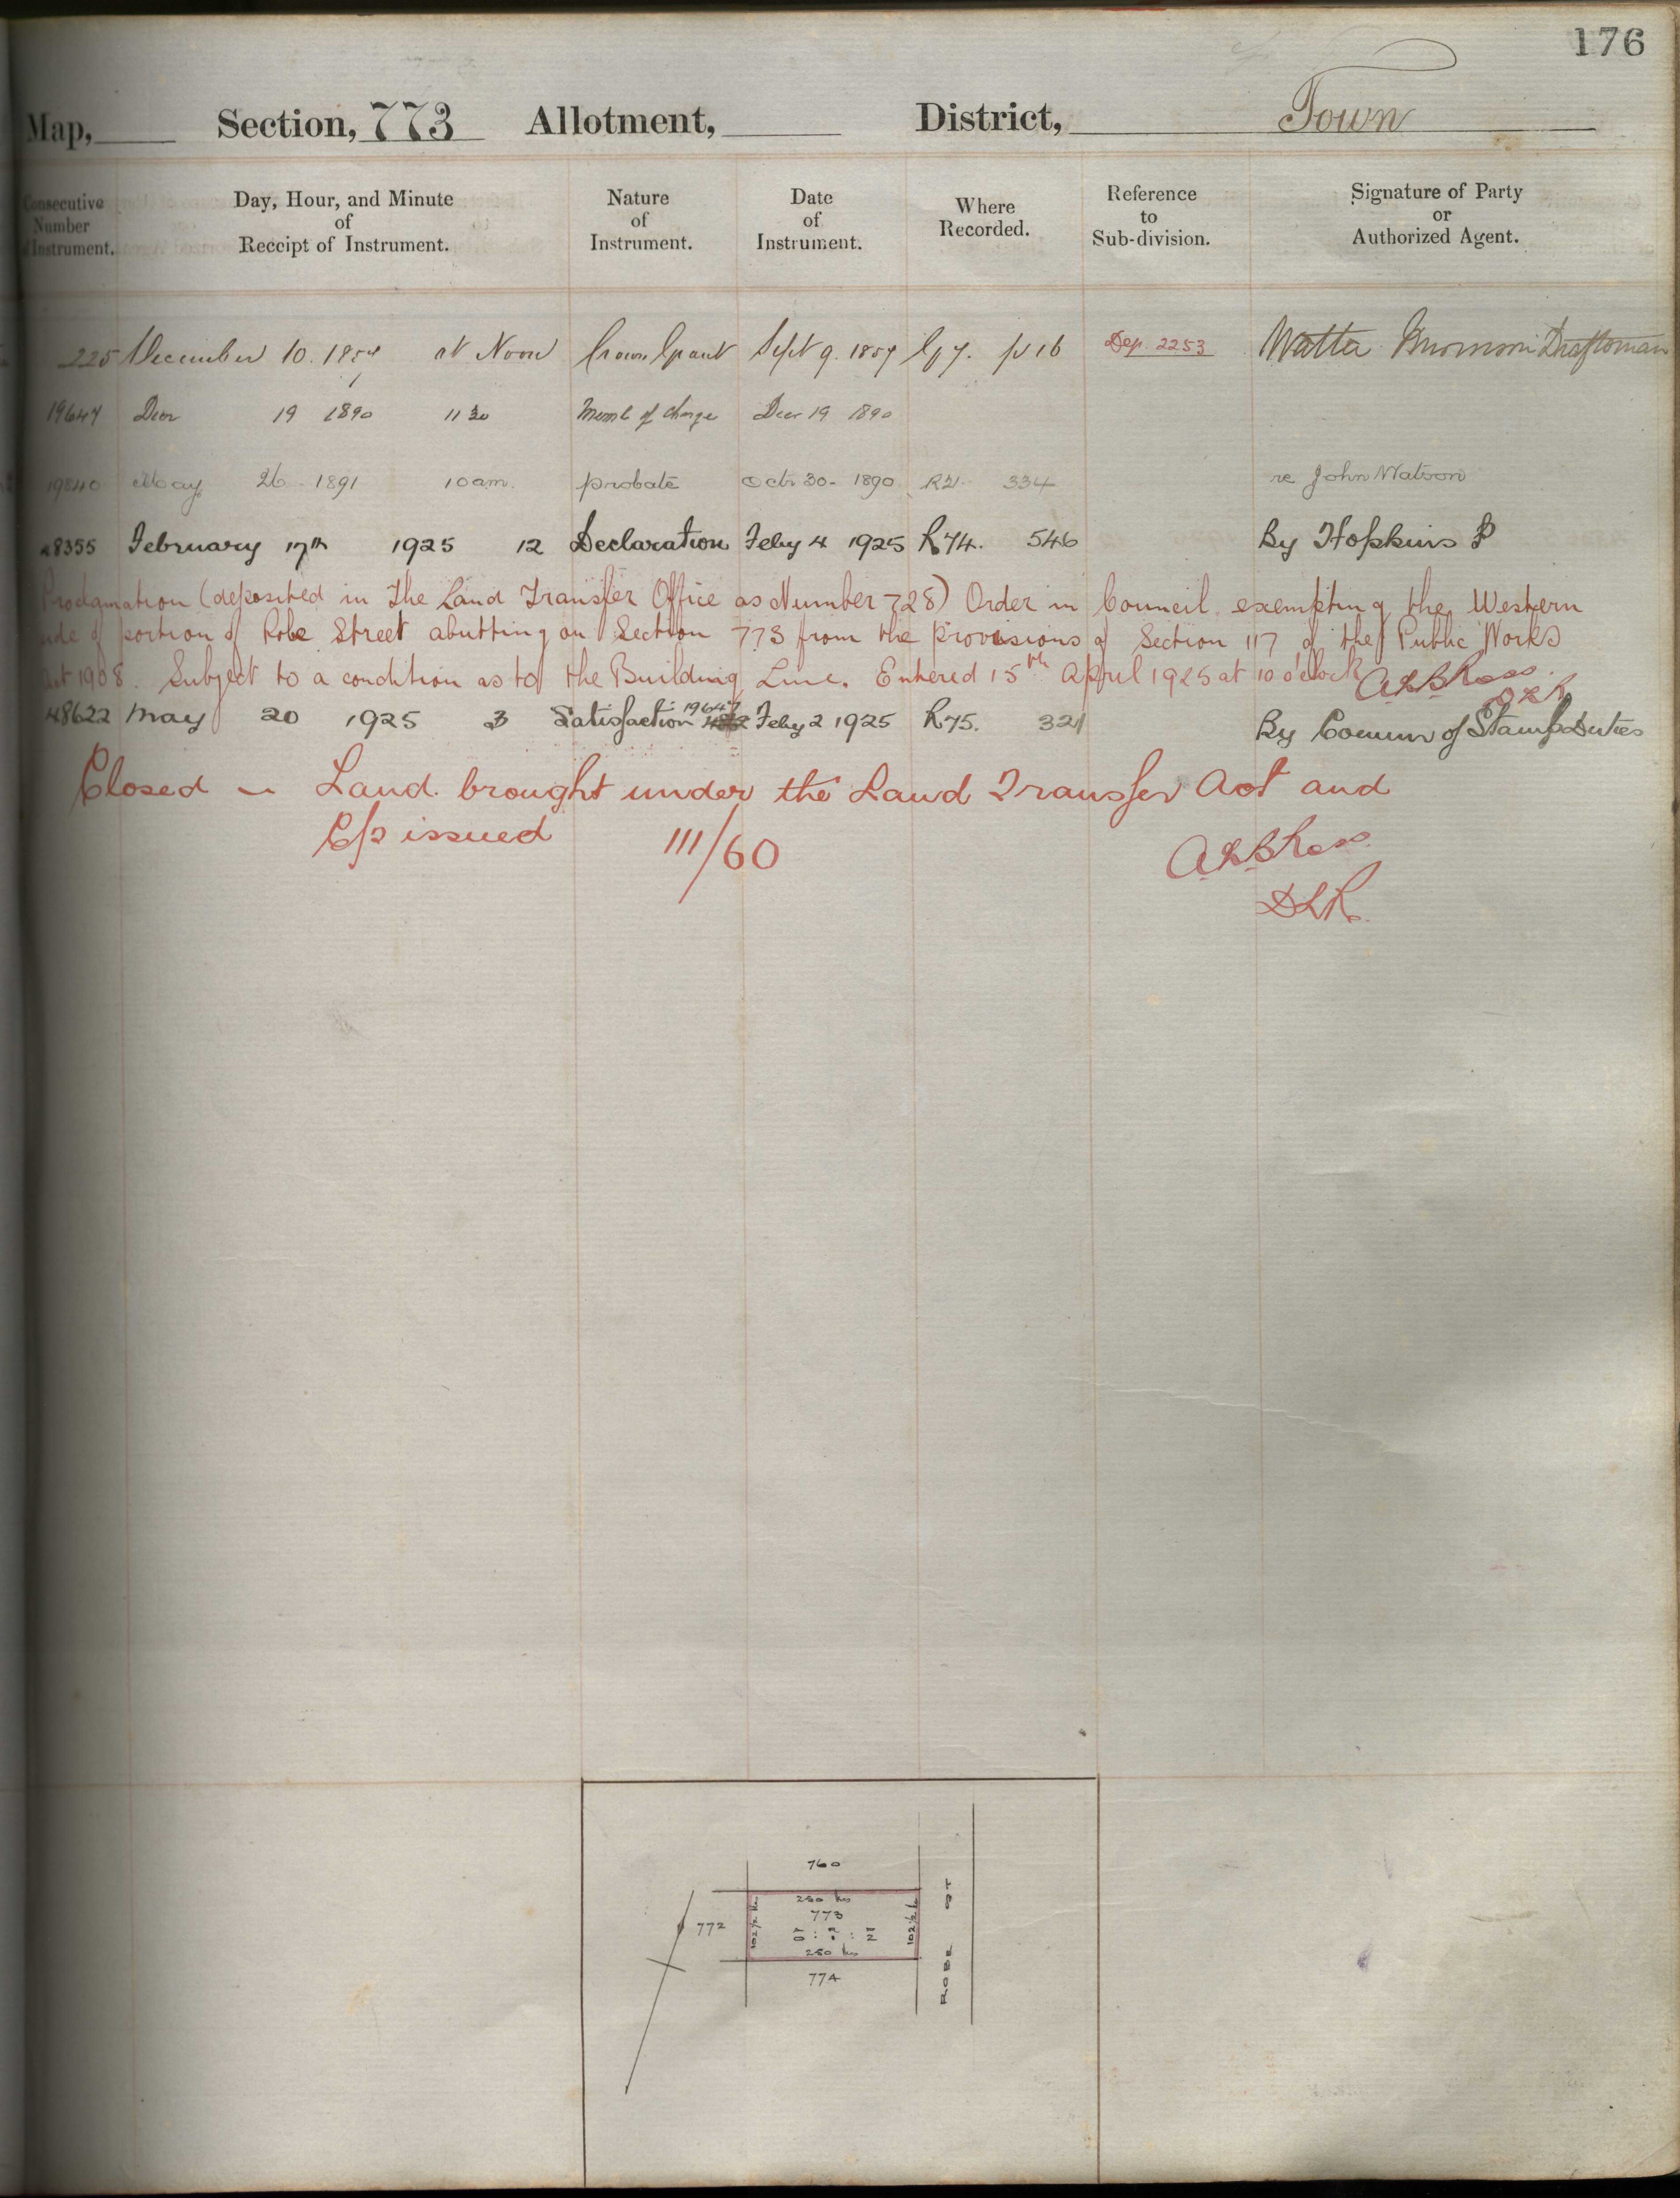 176
Map, Section, 773 Allotment, District, Town
Consecutive Number of Instrument.
Day, Hour, and Minute of Receipt of Instrument.
Nature of Instrument.
Date of Instrument.
Where Recorded.
Reference to Sub-division.
Signature of Party or Authorized Agent.
225 December 10. 1857 at Noon Crown Grant Sept 9. 1857 G 7. p 16 Dep. 2253 Draftsman
19647 Decr 19 1890 11 30 Meml of Charge Decr 19 1890
19840 May 26 1891 10 am. probate Octr 30 - 1890 R21. 334 re John Watson
48355 February 17th 1925 12 Declaration Feby 4 1925 R74. 546 By Hopkins P
Proclamation (deposited in the Land Transfer Office as Number 728) Order in Council exempting the Western
side of portion of Robe Street abutting on Section 773 from the provisions of Section 117 of the Public Works
Act 1908. Subject to a condition as to the Building Line. Entered 15th April 1925 at 10 o'clock
DLR
48622 May 20 1925 3 Satisfaction 19647 Feby 2 1925 R75. 321 By Commr of Stamp Duties
Closed – Land brought under the Land Transfer Act and
C/T issued 111/60
DLR.
760
250 lks
772
102½ lks
773
102½ lks
A R P
0 : 1 : 2
250 lks
774
ROBE ST